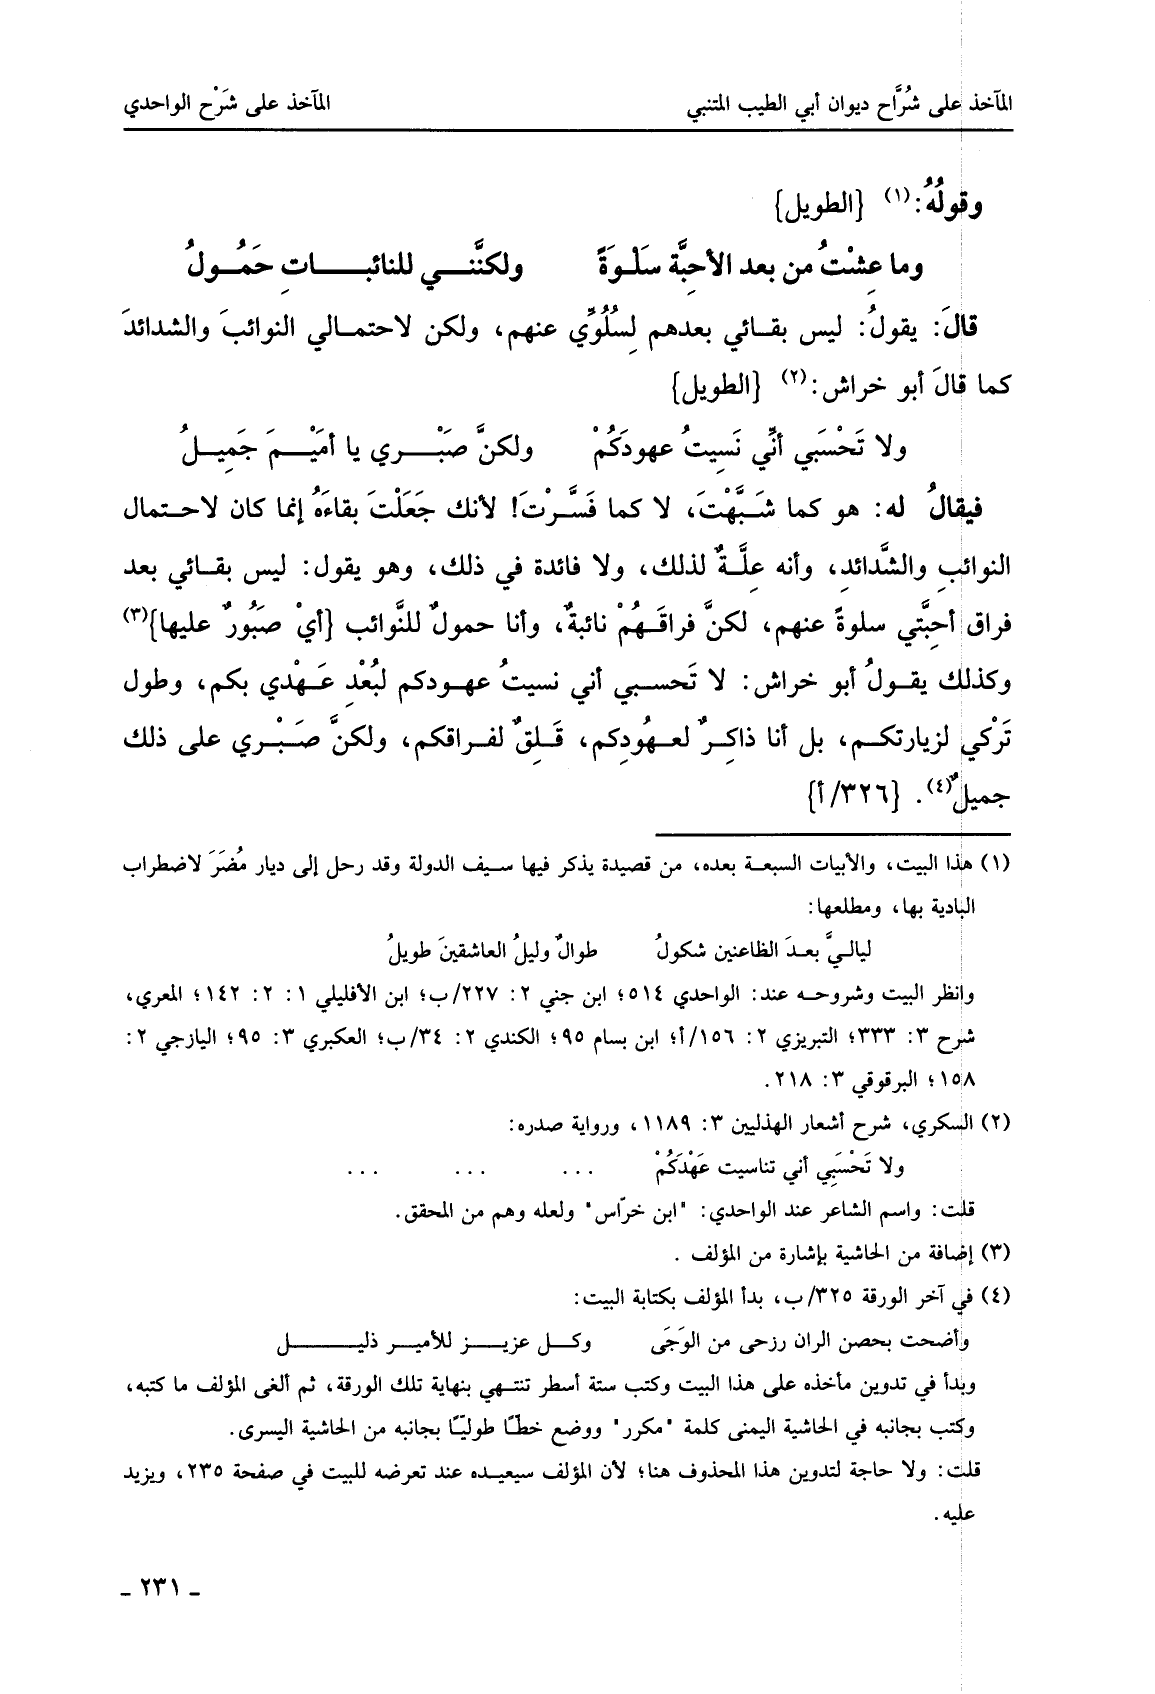 المآخذ على شُرَّاح ديوان أبي الطيب المتنبي المآخذ على شَرْح الواحدي
وقولُهُ:(١) {الطويل}
وما عِشْتُ من بعد الأحِبَّة سَلْوَةً ولكنَّني للنائبات حَمُولُ
قالَ: يقولُ: ليس بقائي بعدهم لِسُلُوِّي عنهم، ولكن لاحتمالي النوائبَ والشدائدَ
كما قالَ أبو خراش:(٢) {الطويل}
ولا تَحْسَبي أنِّي نَسِيتُ عهودَكُمْ ولكنَّ صَبْري يا أمَيْمَ جَمِيلُ
فيقالُ له: هو كما شَبَّهْتَ، لا كما فَسَّرْتَ! لأنك جَعَلْتَ بقاءَهُ إنما كان لاحتمال
النوائبِ والشَّدائدِ، وأنه عِلَّةٌ لذلك، ولا فائدة في ذلك، وهو يقول: ليس بقائي بعد
فراق أحِبَّتي سلوةً عنهم، لكنَّ فراقَهُمْ نائبةٌ، وأنا حمولٌ للنَّوائب {أيْ صَبُورٌ عليها}(٣)
وكذلك يقولُ أبو خراش: لا تَحسبي أني نسيتُ عهودكم لبُعْدِ عَهْدي بكم، وطول
تَرْكي لزيارتكم، بل أنا ذاكِرٌ لعهُودِكم، قَلِقٌ لفراقكم، ولكنَّ صَبْري على ذلك
جميلٌ(٤). {٣٢٦/أ}
(١) هذا البيت، والأبيات السبعة بعده، من قصيدة يذكر فيها سيف الدولة وقد رحل إلى ديار مُضَرَ لاضطراب
البادية بها، ومطلعها:
ليالـيَّ بعدَ الظاعنين شكولُ طوالٌ وليلُ العاشقينَ طويلُ
وانظر البيت وشروحه عند: الواحدي ٥١٤؛ ابن جني ٢: ٢٢٧/ب؛ ابن الأفليلي ١: ٢: ١٤٢؛ المعري،
شرح ٣: ٣٣٣؛ التبريزي ٢: ١٥٦/أ؛ ابن بسام ٩٥؛ الكندي ٢: ٣٤/ب؛ العكبري ٣: ٩٥؛ اليازجي ٢:
١٥٨؛ البرقوقي ٣: ٢١٨.
(٢) السكري، شرح أشعار الهذليين ٣: ١١٨٩، ورواية صدره:
ولا تَحْسَبِي أني تناسيت عَهْدَكُمْ ... ... ...
قلت: واسم الشاعر عند الواحدي: "ابن خرّاس" ولعله وهم من المحقق.
(٣) إضافة من الحاشية بإشارة من المؤلف .
(٤) في آخر الورقة ٣٢٥/ب، بدأ المؤلف بكتابة البيت:
وأضحت بحصن الران رزحى من الوَجَى وكل عزيز للأمير ذليل
وبدأ في تدوين مأخذه على هذا البيت وكتب ستة أسطر تنتهي بنهاية تلك الورقة، ثم ألغى المؤلف ما كتبه،
وكتب بجانبه في الحاشية اليمنى كلمة "مكرر" ووضع خطًا طوليًا بجانبه من الحاشية اليسرى.
قلت: ولا حاجة لتدوين هذا المحذوف هنا؛ لأن المؤلف سيعيده عند تعرضه للبيت في صفحة ٢٣٥، ويزيد
عليه.
ـ ٢٣١ ـ